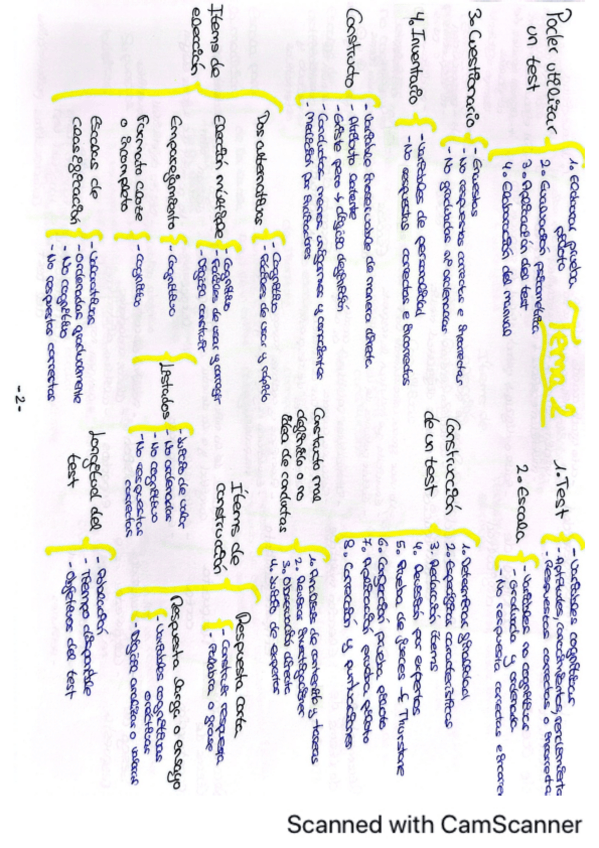 Tema 2
Poder utilizar
un test
1. Elaborar prueba
piloto
2. Evaluación psicométrica
3. Aplicación del test
4. Elaboración del manual
3. Cuestionario
- Encuestas
- No respuestas correctas e incorrectas
- No graduadas ni ordenadas
4. Inventario
- Variables de personalidad
- No respuestas correctas e incorrectas
Constructo
- Variable inobservable de manera directa
- Atributo latente
- Existe pero + difícil definición
- Conductas menos uniformes y consistentes
- Medición por indicadores
Ítems de
elección
Dos alternativas
- Cognitivo
- Fáciles de usar y rápido
Elección múltiple
- Cognitivo
- Fáciles de usar y corregir
- Difícil construir
Emparejamiento
- Cognitivo
Formato clave
o incompleto
- Cognitivo
Escalas de
clasificación
- Valorativas
- Ordenadas gradualmente
- No cognitivo
- No respuestas correctas
1. Test
- Variables cognitivas
- Aptitudes, conocimientos, rendimiento
- Respuestas correctas o incorrecta
2. Escala
- Variables no cognitivas
- Graduada y ordenada
- No respuesta correctas e incorre
Construcción
de un test
1. Determinar finalidad
2. Especificar características
3. Redacción ítems
4. Revisión por expertos
5. Prueba de jueces → Thurstone
6. Confección prueba piloto
7. Aplicación prueba piloto
8. Corrección y puntuaciones
Constructo mal
definido o no
área de conductas
1. Análisis de contenido y tareas
2. Revisar investigaciones
3. Observación directa
4. Juicio de expertos
Ítems de
construcción
Respuesta corta
- Construir respuesta
- Palabra o frase
Respuesta larga o ensayo
- Variables cognitivas
efectivas
- Difícil analizar o valorar
Listados
- Juicio de valor
- No ordenados
- No cognitivo
- No respuestas
correctas
Longitud del
test
- Población
- Tiempo disponible
- Objetivos del test
- 2 -
Scanned with CamScanner